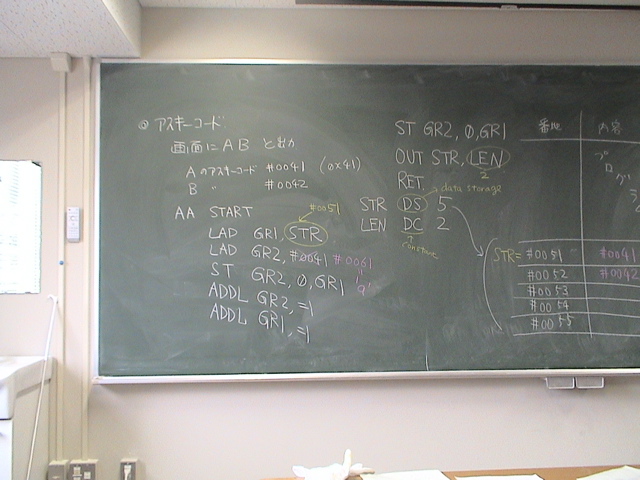 ◎ アスキーコード
画面にAB と出力
Aのアスキーコード #0041 (0x41)
B 〃 #0042
AA START
#0051
LAD GR1, STR
LAD GR2, #0041 #0061
ST GR2, 0, GR1
'a'
ADDL GR2, =1
ADDL GR1, =1
ST GR2, 0, GR1
OUT STR, LEN
2
RET
data storage
STR DS 5
LEN DC 2
constant
番地 内容
プログラム
STR= #0051 #0041
#0052 #0042
#0053
#0054
#0055